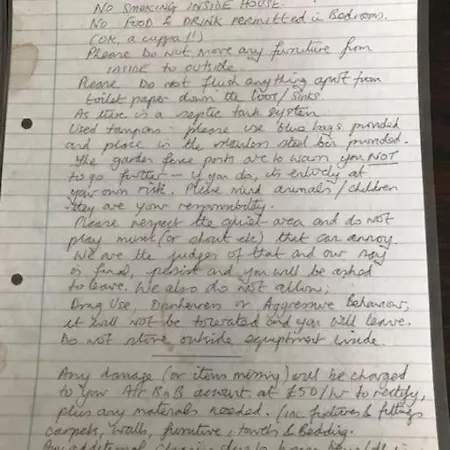 NO SMOKING INSIDE HOUSE.
NO FOOD & DRINK PERMITTED in Bedrooms.
(OK, a cuppa!!)
Please Do not move any furniture from
INSIDE to outside.
Please Do not flush anything apart from
toilet paper down the loos/sinks.
As there is a septic tank system.
Used tampons - please use blue bags provided
and place in the stainless steel bin provided.
The garden fence posts are to warn you NOT
to go further - if you do, its entirely at
your own risk. Please mind animals/children
- they are your responsibility.
Please respect the quiet area and do not
play music (or shout etc) that can annoy.
We are the judges of that and our say
is final, persist and you will be asked
to leave. We also do not allow;
Drug Use, Drunkenness or Aggressive Behaviour,
it will not be tolerated and you will leave.
Do not store outside equiptment inside.
Any damage (or items missing) will be charged
to your Air BnB account at £50/hr to rectify,
plus any materials needed. (inc fixtures & fittings
carpets, walls, furniture, towels & Bedding.
Any additional